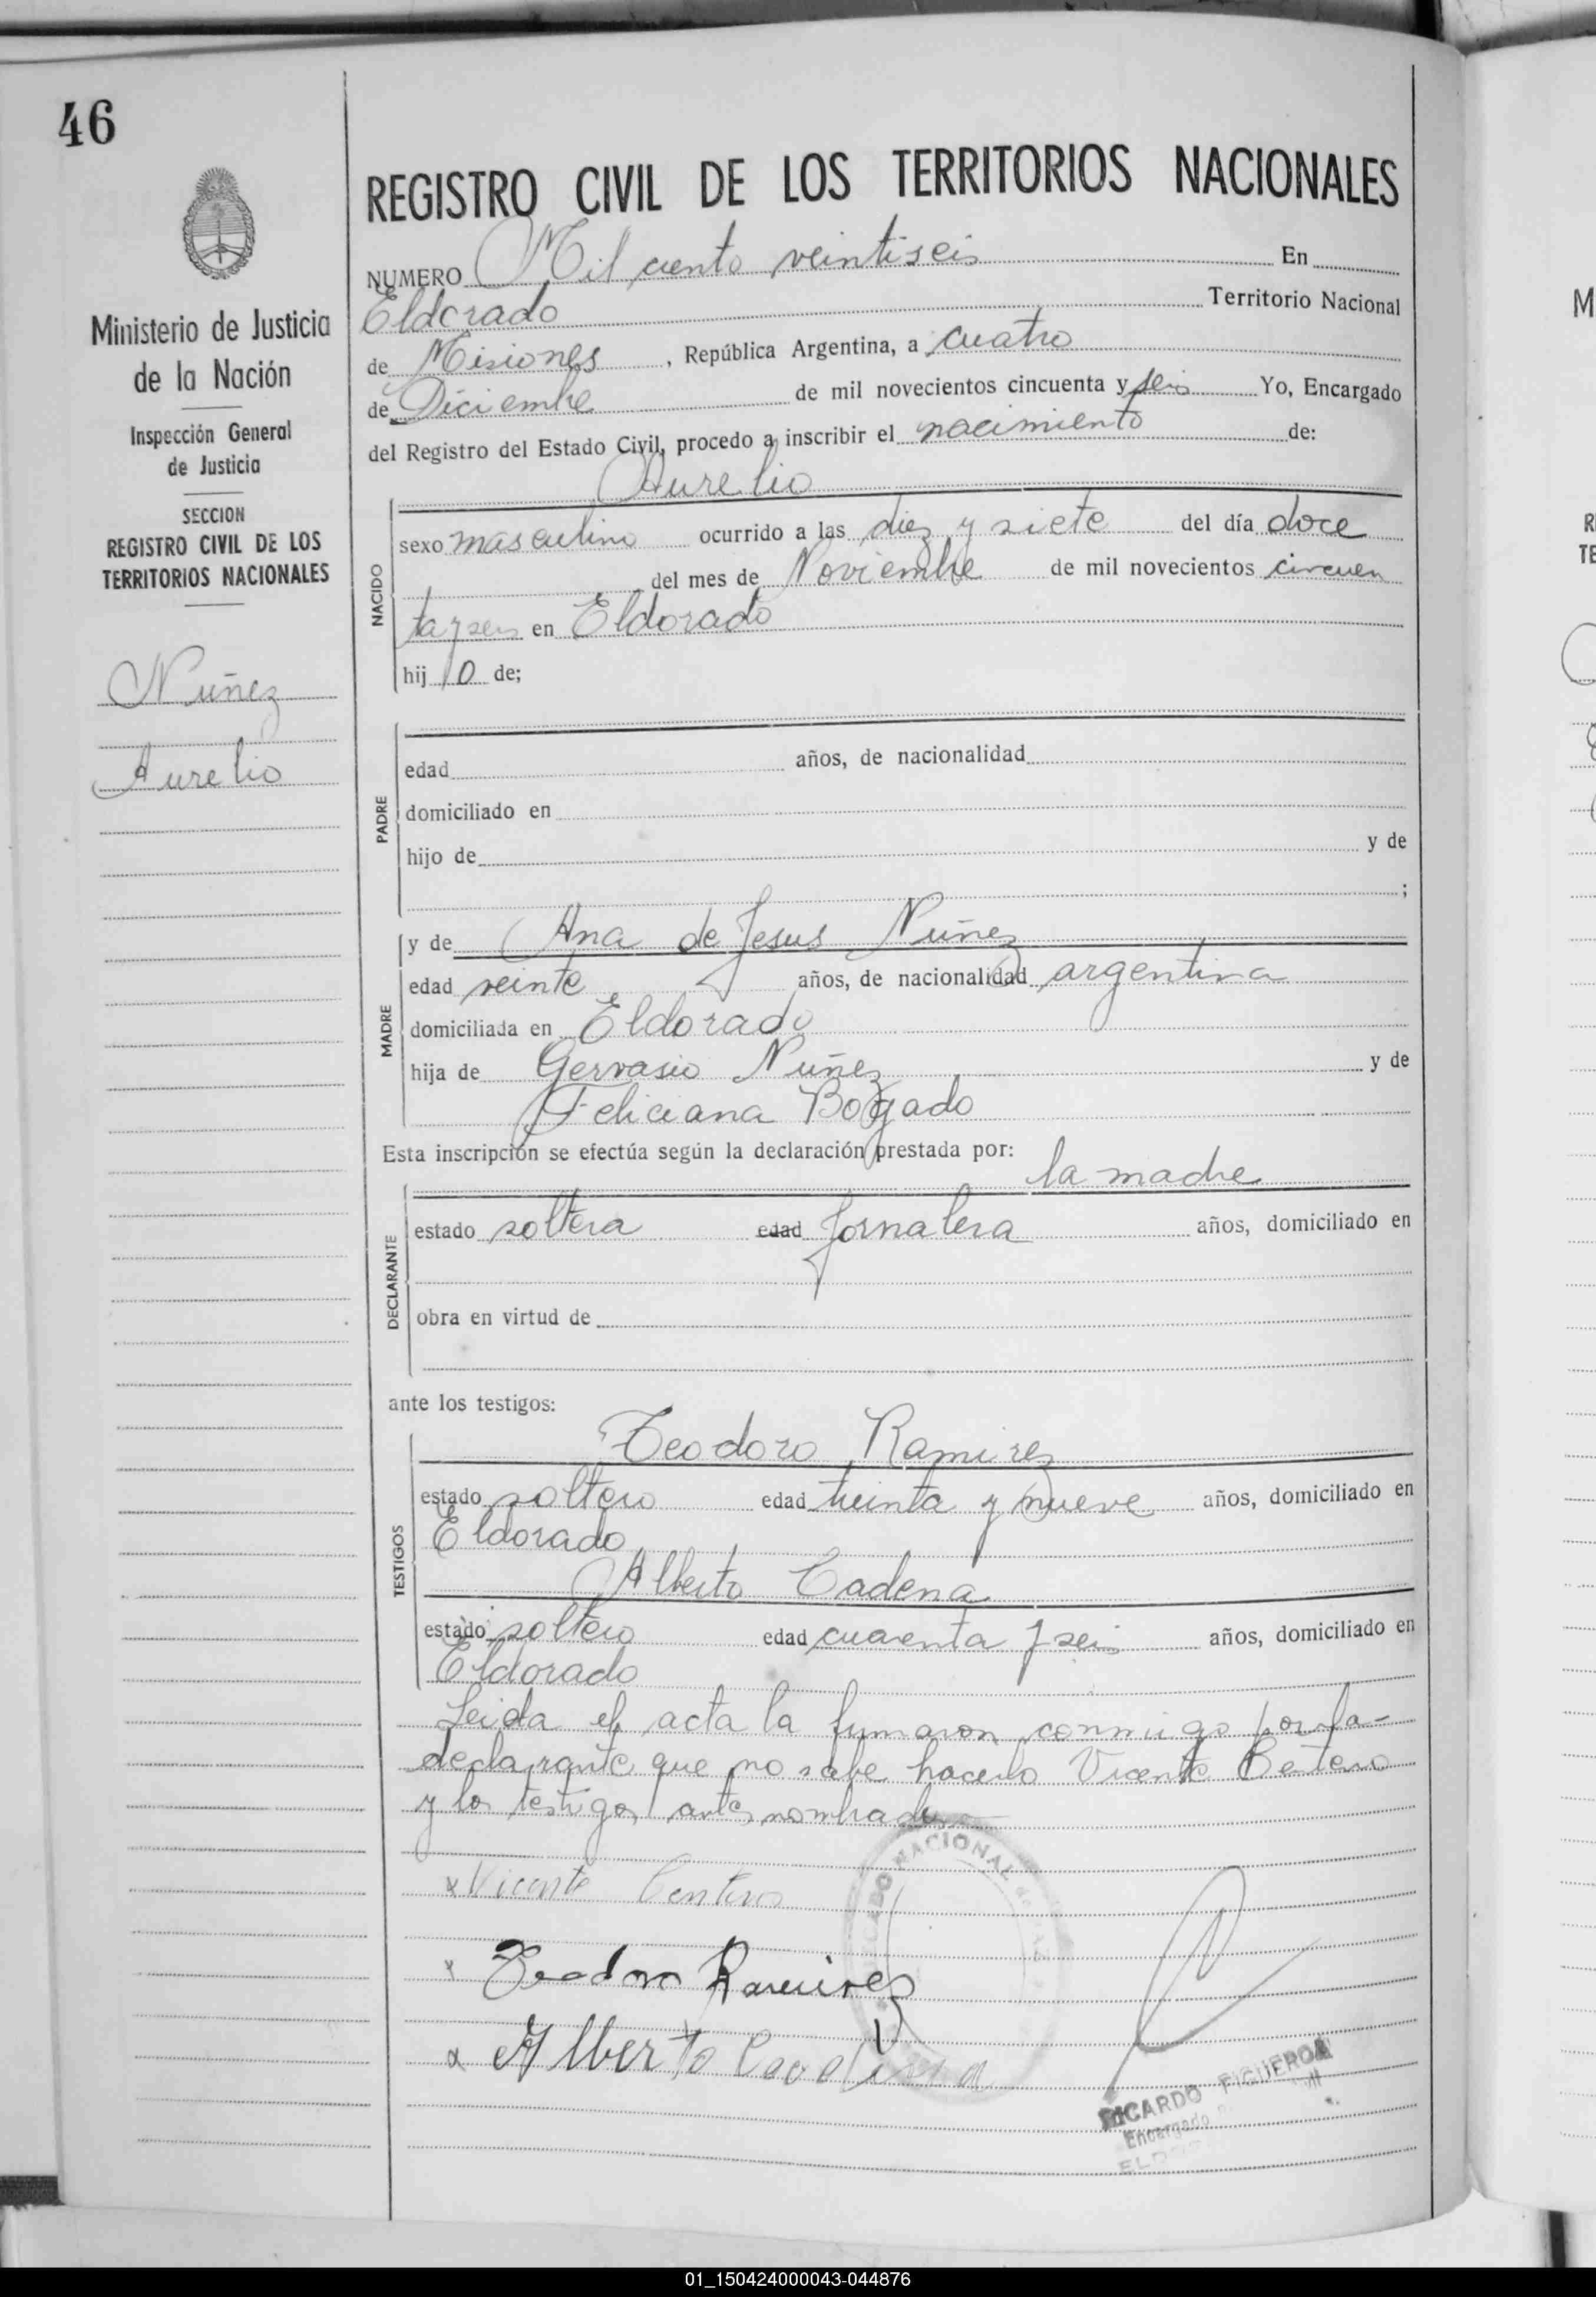 46
Ministerio de Justicia
de la Nación
Inspección General
de Justicia
SECCION
REGISTRO CIVIL DE LOS
TERRITORIOS NACIONALES
Nuñez
Aurelio
REGISTRO CIVIL DE LOS TERRITORIOS NACIONALES
NUMERO Mil ciento veintiseis En
Eldorado Territorio Nacional
de Misiones, República Argentina, a cuatro
de Diciembre de mil novecientos cincuenta y seis Yo, Encargado
del Registro del Estado Civil, procedo a inscribir el nacimiento de:
Aurelio
NACIDO
sexo masculino ocurrido a las diez y siete del día doce
del mes de Noviembre de mil novecientos cincuen
ta y seis en Eldorado
hijo de;
PADRE
edad años, de nacionalidad
domiciliado en
hijo de y de
;
MADRE
y de Ana de Jesus Nuñez
edad veinte años, de nacionalidad argentina
domiciliada en Eldorado
hija de Gervasio Nuñez y de
Feliciana Bogado
Esta inscripción se efectúa según la declaración prestada por:
la madre
DECLARANTE
estado soltera edad Jornalera años, domiciliado en
obra en virtud de
ante los testigos:
TESTIGOS
Teodoro Ramirez
estado soltero edad treinta y nueve años, domiciliado en
Eldorado
Alberto Cadena
estado soltero edad cuarenta y seis años, domiciliado en
Eldorado
Leida el acta la firmaron conmigo por la-
declarante que no sabe hacerlo Vicente
y los testigos antes nombrados
x Vicente Centero
x Teodoro Ramirez
x Alberto
NACIONAL
RICARDO FIGUEROA
Encargado
01_150424000043-044876